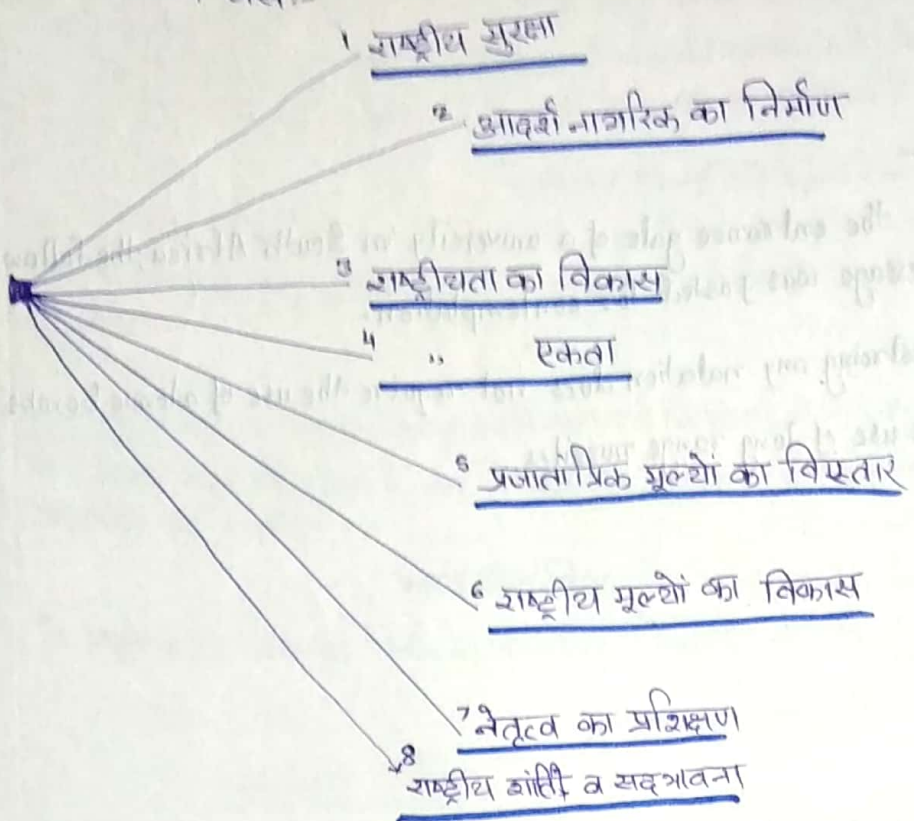 1 राष्ट्रीय सुरक्षा
2 आदर्श नागरिक का निर्माण
3 राष्ट्रीयता का विकास
4 " एकता
5 प्रजातांत्रिक मूल्यो का विस्तार
6 राष्ट्रीय मूल्यों का विकास
7 नेतृत्व का प्रशिक्षण
8 राष्ट्रीय शांति व सदभावना